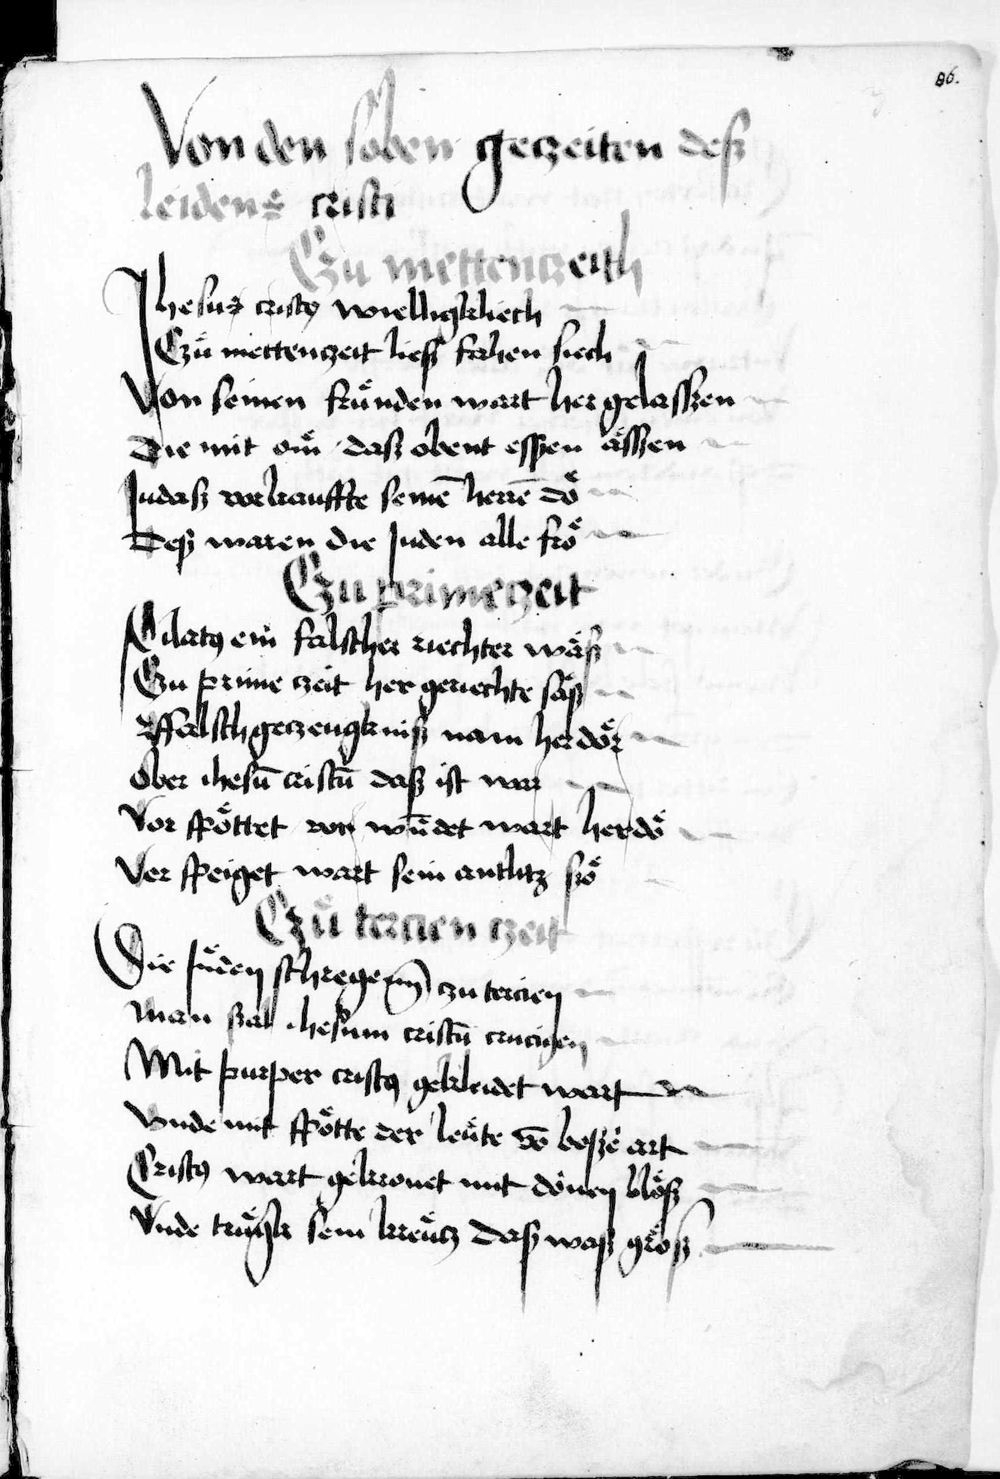 86.
Von den soben geczeiten desz
leidens cristi
Czu mettenczeith
Jhesus cristus wielligkliech
Czů mettenczeit liesz fahen siech
Von seinen frůnden wart her gelasszen
Die mit om̊ dasz obent esszen åsszen
Judasz vorkauffte seinē herrē dǒ
Desz waren die Juden alle frǒ
Czu primeczeit
Pilatus ein falscher riechter wåsz
Czu prime czeit her geriechte såsz
Ffalsch geczeugknisz nam her dǒr
Ober ihesū cristū dasz ist war
Vorspǒttet vorwūdet wart her dǒ
Verspeiget wart sein antlitz szǒ
Czů tercien zeit
Die Jůden schregenn czu tercien
Man szal ihesum cristū crucigen
Mit purper cristus gekleidet wart
Vnde mit spǒtte der leůte vō boszer art
Cristus wart gekronet mit dǒnen blǒsz
Vnde trůgk sein kreůcz dasz wasz grǒsz